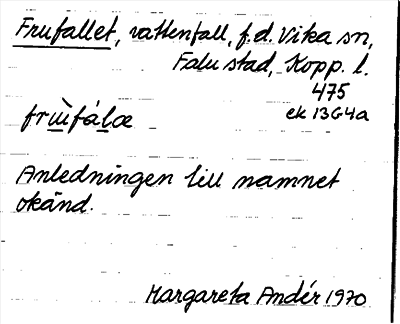 Frufallet, vattenfall, f.d. Vika sn,
Falu stad, Kopp. l.
475
ek 13G4a
frùfálæ
Anledningen till namnet
okänd.
Margareta Andér 1970